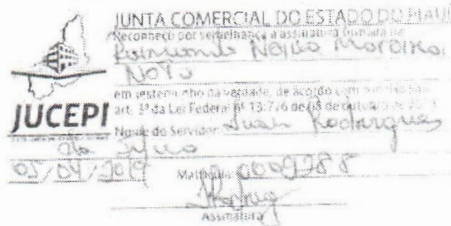 JUNTA COMERCIAL DO ESTADO DO PIAUÍ
Reconheço por semelhança a assinatura firmada de
Raimundo Moreira
Neto
em testemunho da verdade, de acordo com
art. 3º da Lei Federal nº 13.726 de 08 de outubro de
JUCEPI
Nome do Servidor: Juan Rodrigues
da
05/04/2019
Matrícula: 0009288
Assinatura